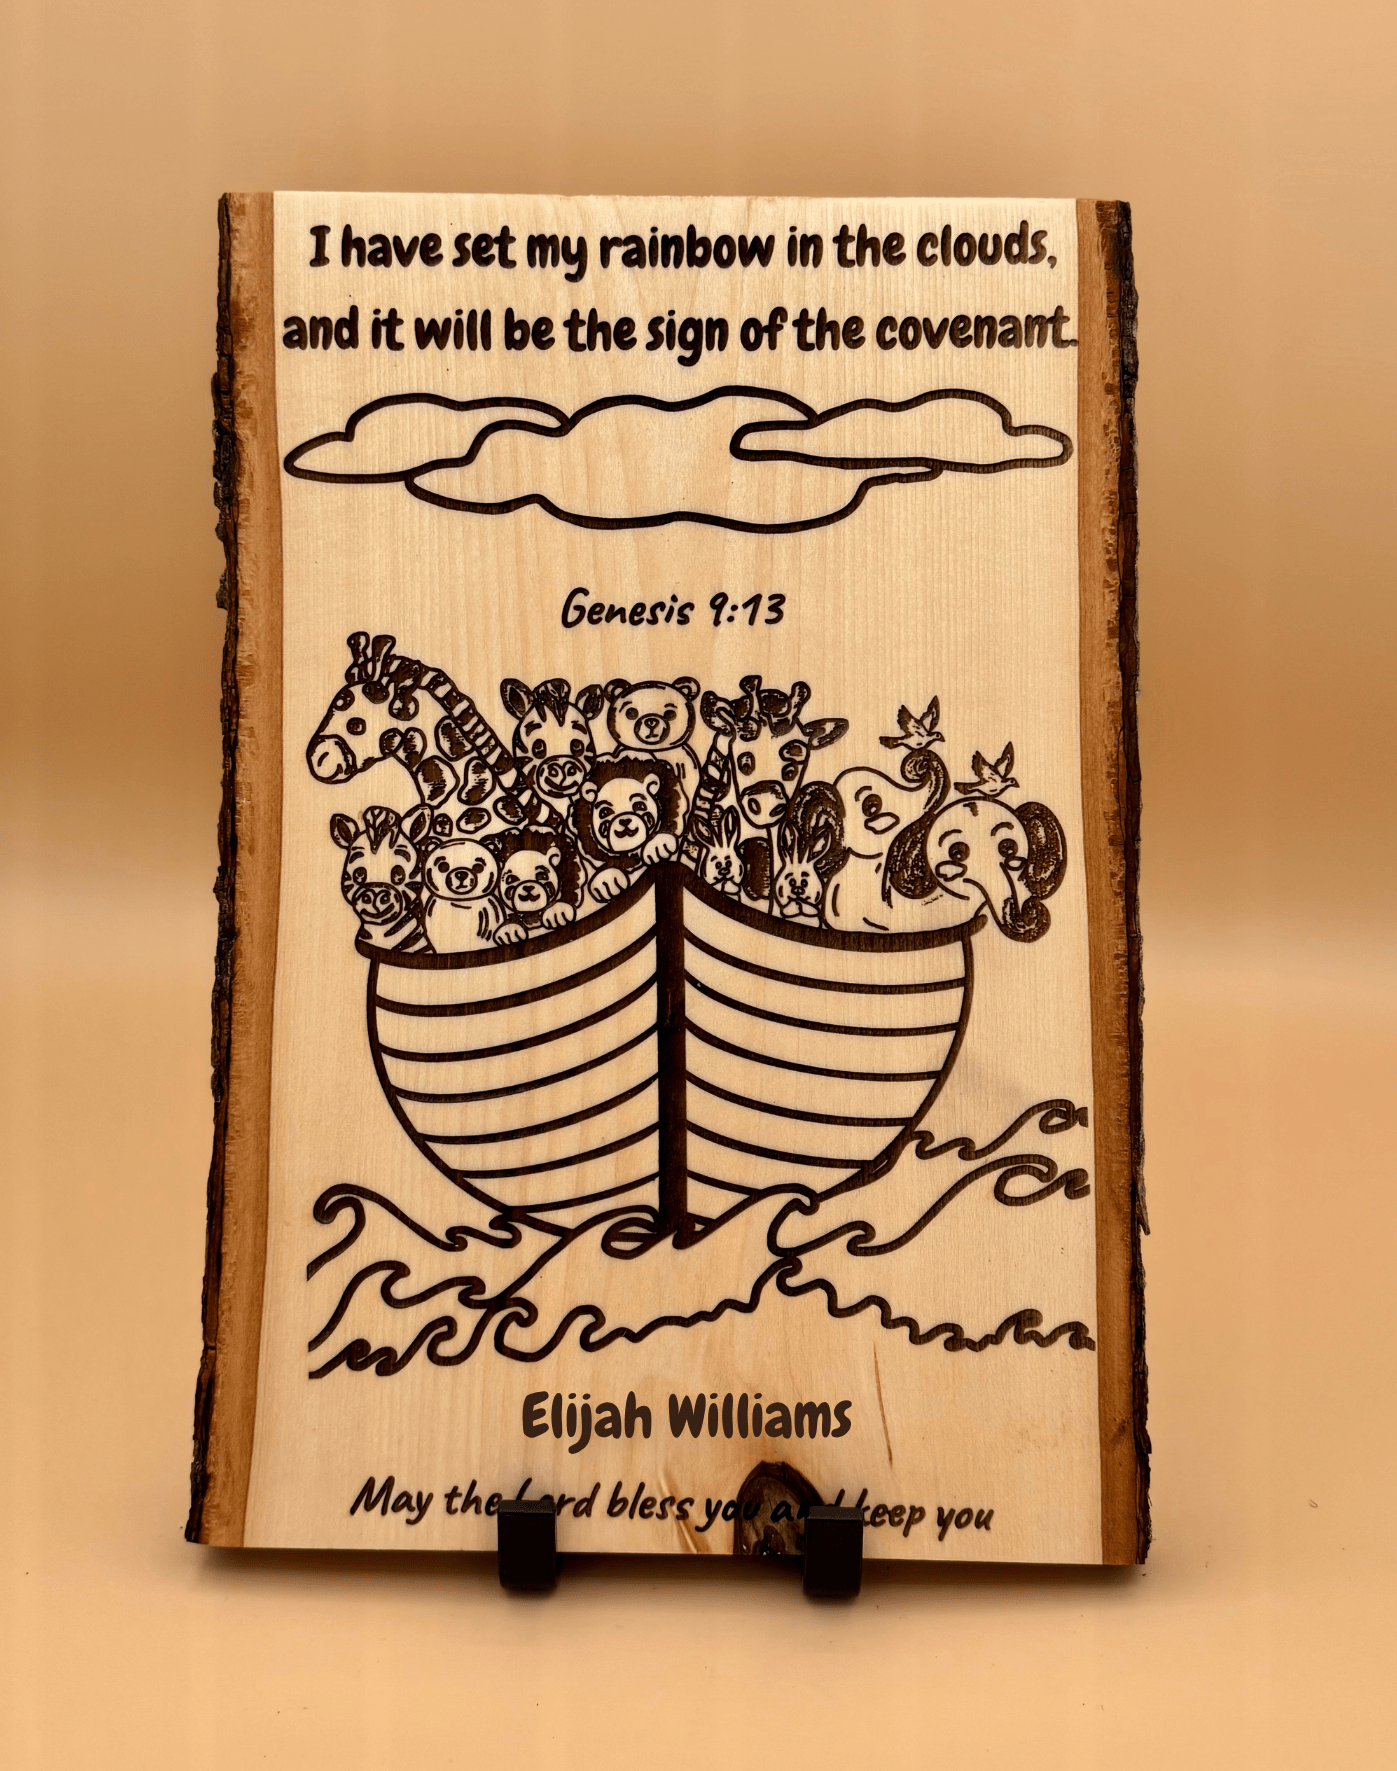 I have set my rainbow in the clouds,
and it will be the sign of the covenant.
Genesis 9:13
Elijah Williams
May the Lord bless you and keep you